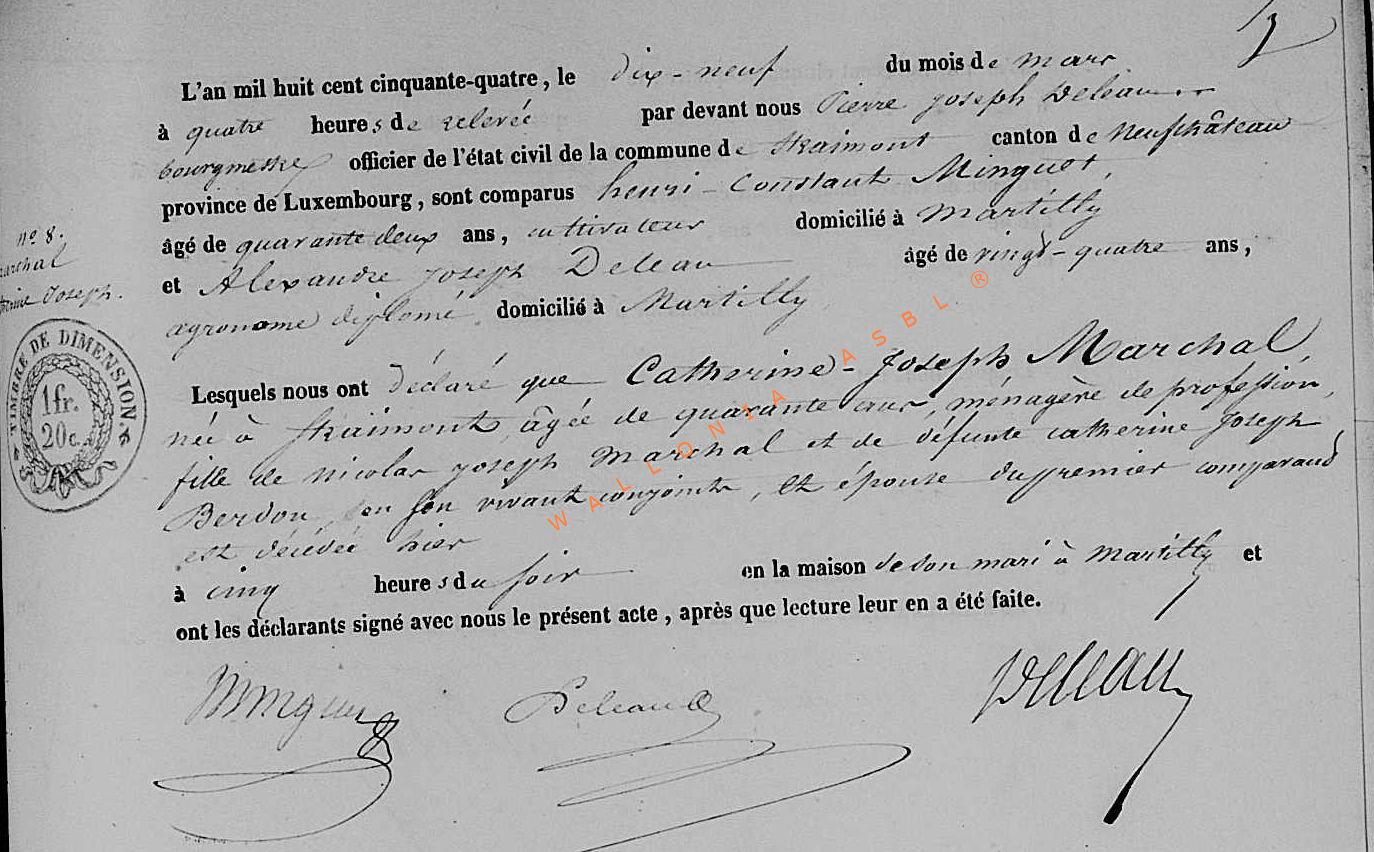 L'an mil huit cent cinquante-quatre, le dix-neuf du mois de mars
à quatre heures de relevée par devant nous Pierre Joseph Deleau
bourgmestre officier de l'état civil de la commune de Straimont canton de Neufchâteau
province de Luxembourg, sont comparus henri-Constant Minguet,
âgé de quarante deux ans, cultivateur domicilié à Martilly
et Alexandre Joseph Deleau âgé de vingt-quatre ans,
agronome diplomé domicilié à Martilly
Lesquels nous ont déclaré que Catherine-Joseph Marchal,
née à Straimont, âgée de quarante ans, ménagère de profession,
fille de nicolas joseph Marchal et de défunte catherine Joseph
Berdon, en son vivant conjoints, et épouse du premier comparand
est décédée hier
à cinq heures du soir en la maison de son mari à Martilly et
ont les déclarants signé avec nous le présent acte, après que lecture leur en a été faite.
n° 8.
archal
Joseph.
TIMBRE DE DIMENSION.
1 fr.
20 c.
WALLONIA ASBL ®
Minguet
Deleau
Deleau